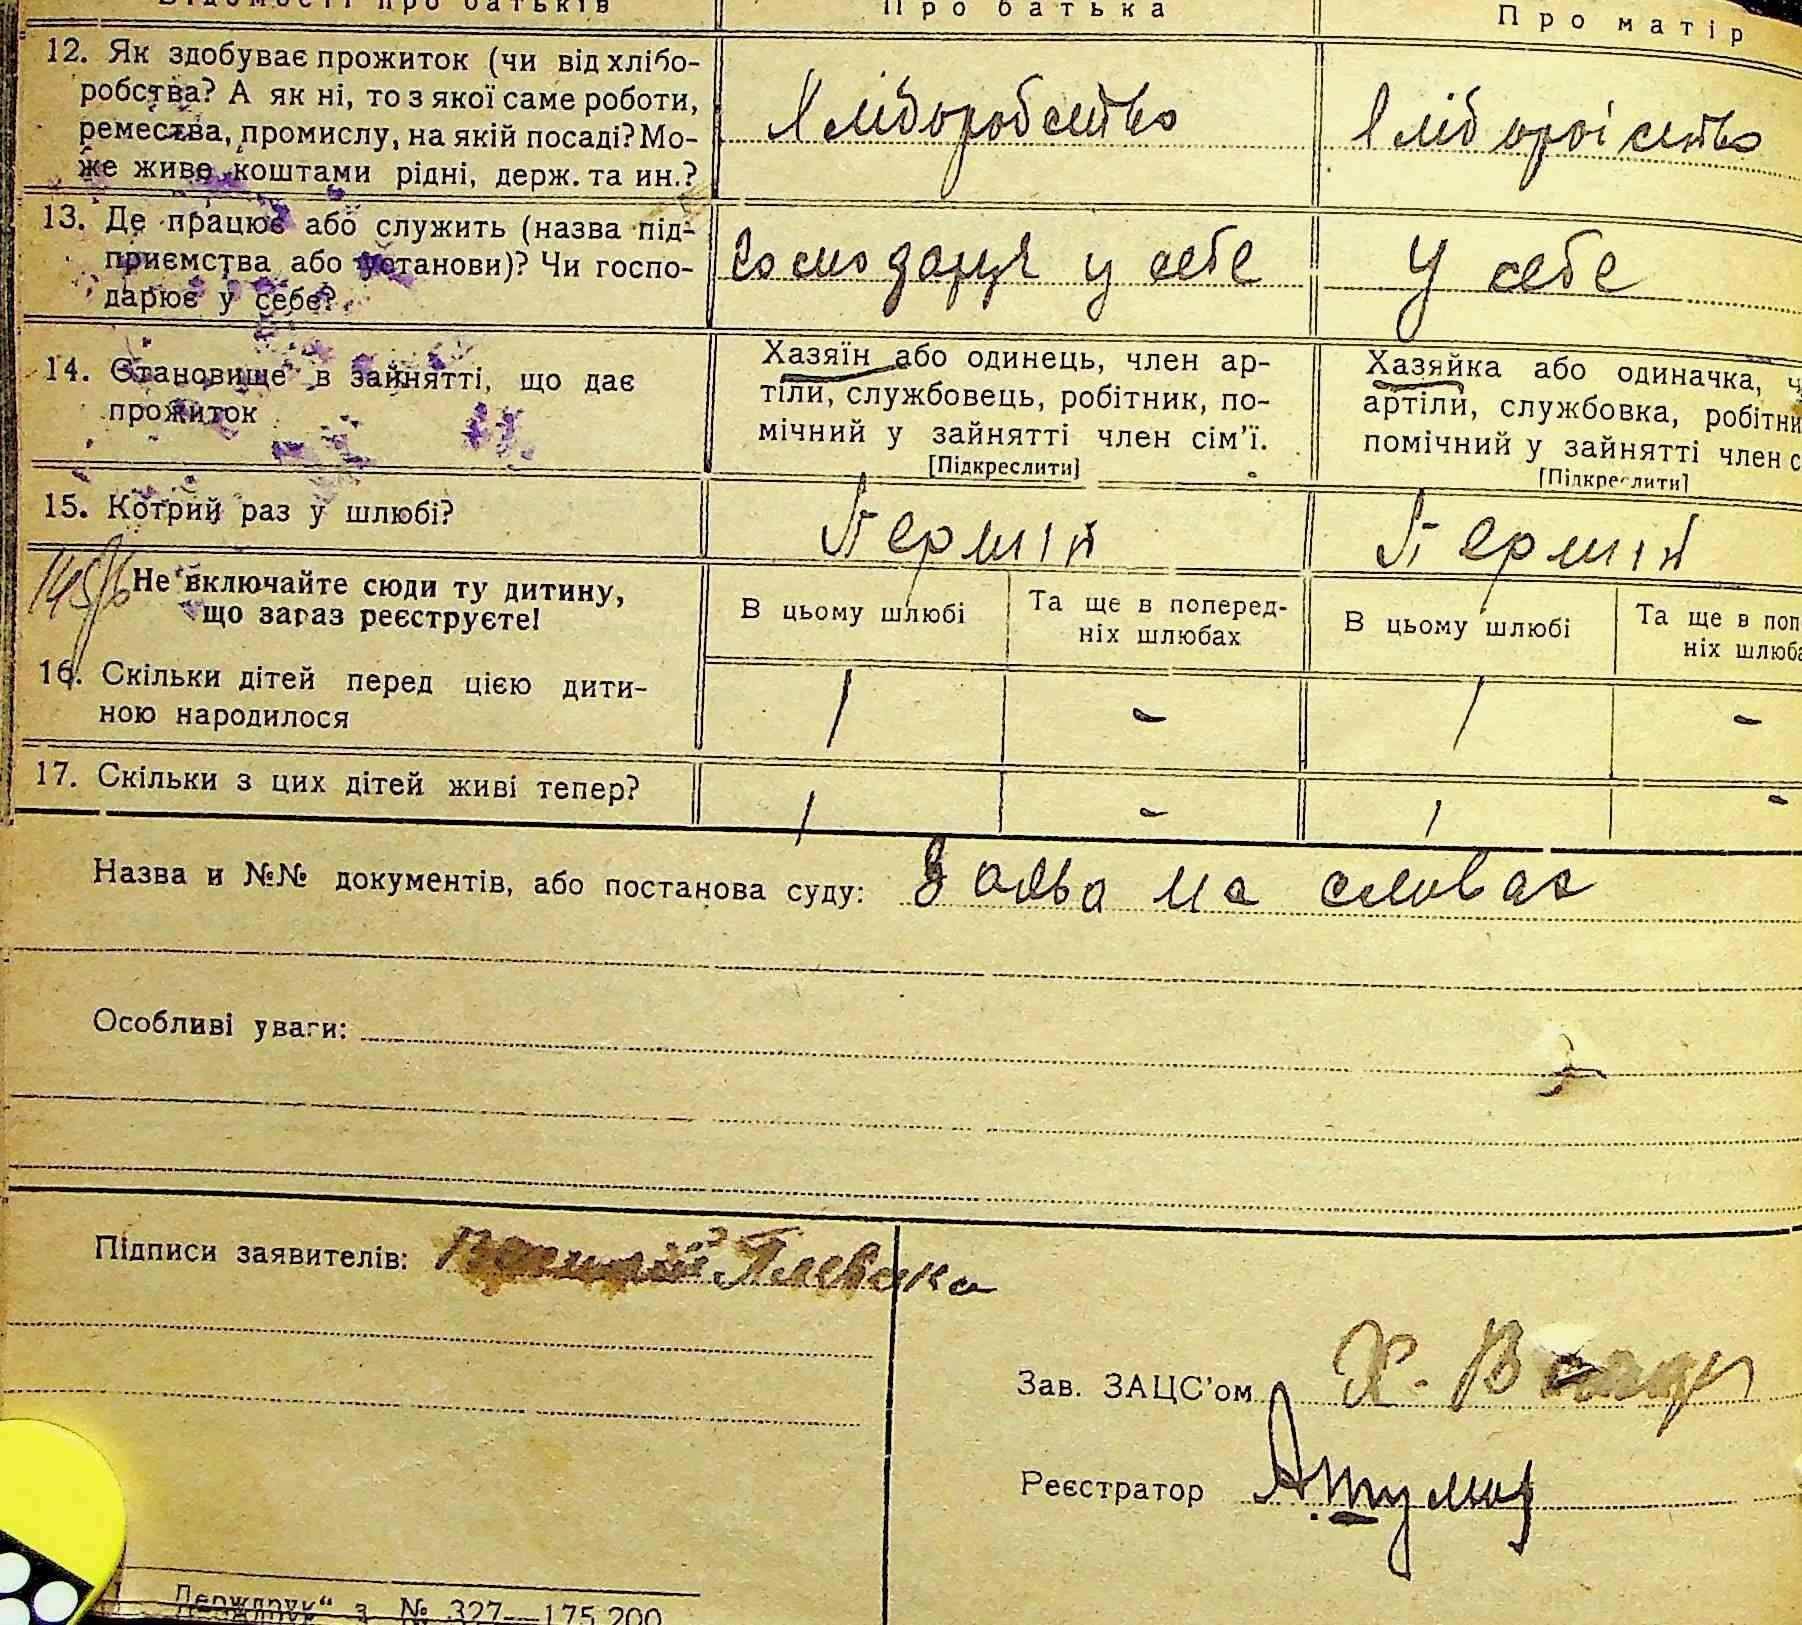 Відомості про батьків Про батька Про матір
12. Як здобуває прожиток (чи від хлібо-
робства? А як ні, то з якої саме роботи,
ремества, промислу, на якій посаді? Мо-
же живе коштами рідні, держ. та ин.?
Хліборобство
13. Де працює або служить (назва під-
приємства або установи)? Чи госпо-
дарює у себе?
у себе
У себе
14. Становище в зайнятті, що дає
прожиток
Хазяїн або одинець, член ар-
тіли, службовець, робітник, по-
мічний у зайнятті член сім'ї.
[Підкреслити]
Хазяйка або одиначка, ч
артіли, службовка, робітни
помічний у зайнятті член с
[Підкреслити]
15. Котрий раз у шлюбі?
Перший
Перший
Не включайте сюди ту дитину,
що зараз реєструєте!
В цьому шлюбі
Та ще в поперед-
ніх шлюбах
В цьому шлюбі
Та ще в поп
ніх шлюба
16. Скільки дітей перед цією дити-
ною народилося
1 - 1 -
17. Скільки з цих дітей живі тепер?
1 - 1 -
Назва и №№ документів, або постанова суду: Заява на словах
Особливі уваги:
Підписи заявителів: Плевака
Зав. ЗАЦС'ом Х.
Реєстратор
Держдрук" з. № 327—175.200